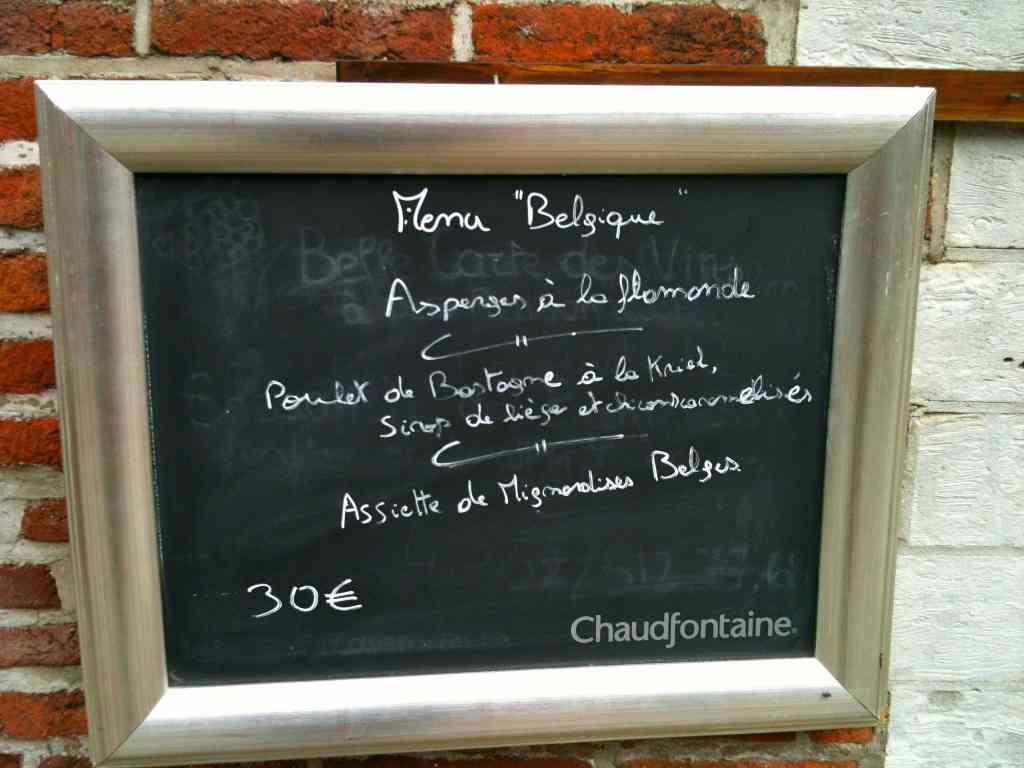 Menu "Belgique"
Belle Carte des Vins
à
Asperges à la flamande
Poulet de Bastogne à la Kriek,
Sirop de liège et chicons caramélisés
Assiette de Mignardises Belges
30€
Chaudfontaine